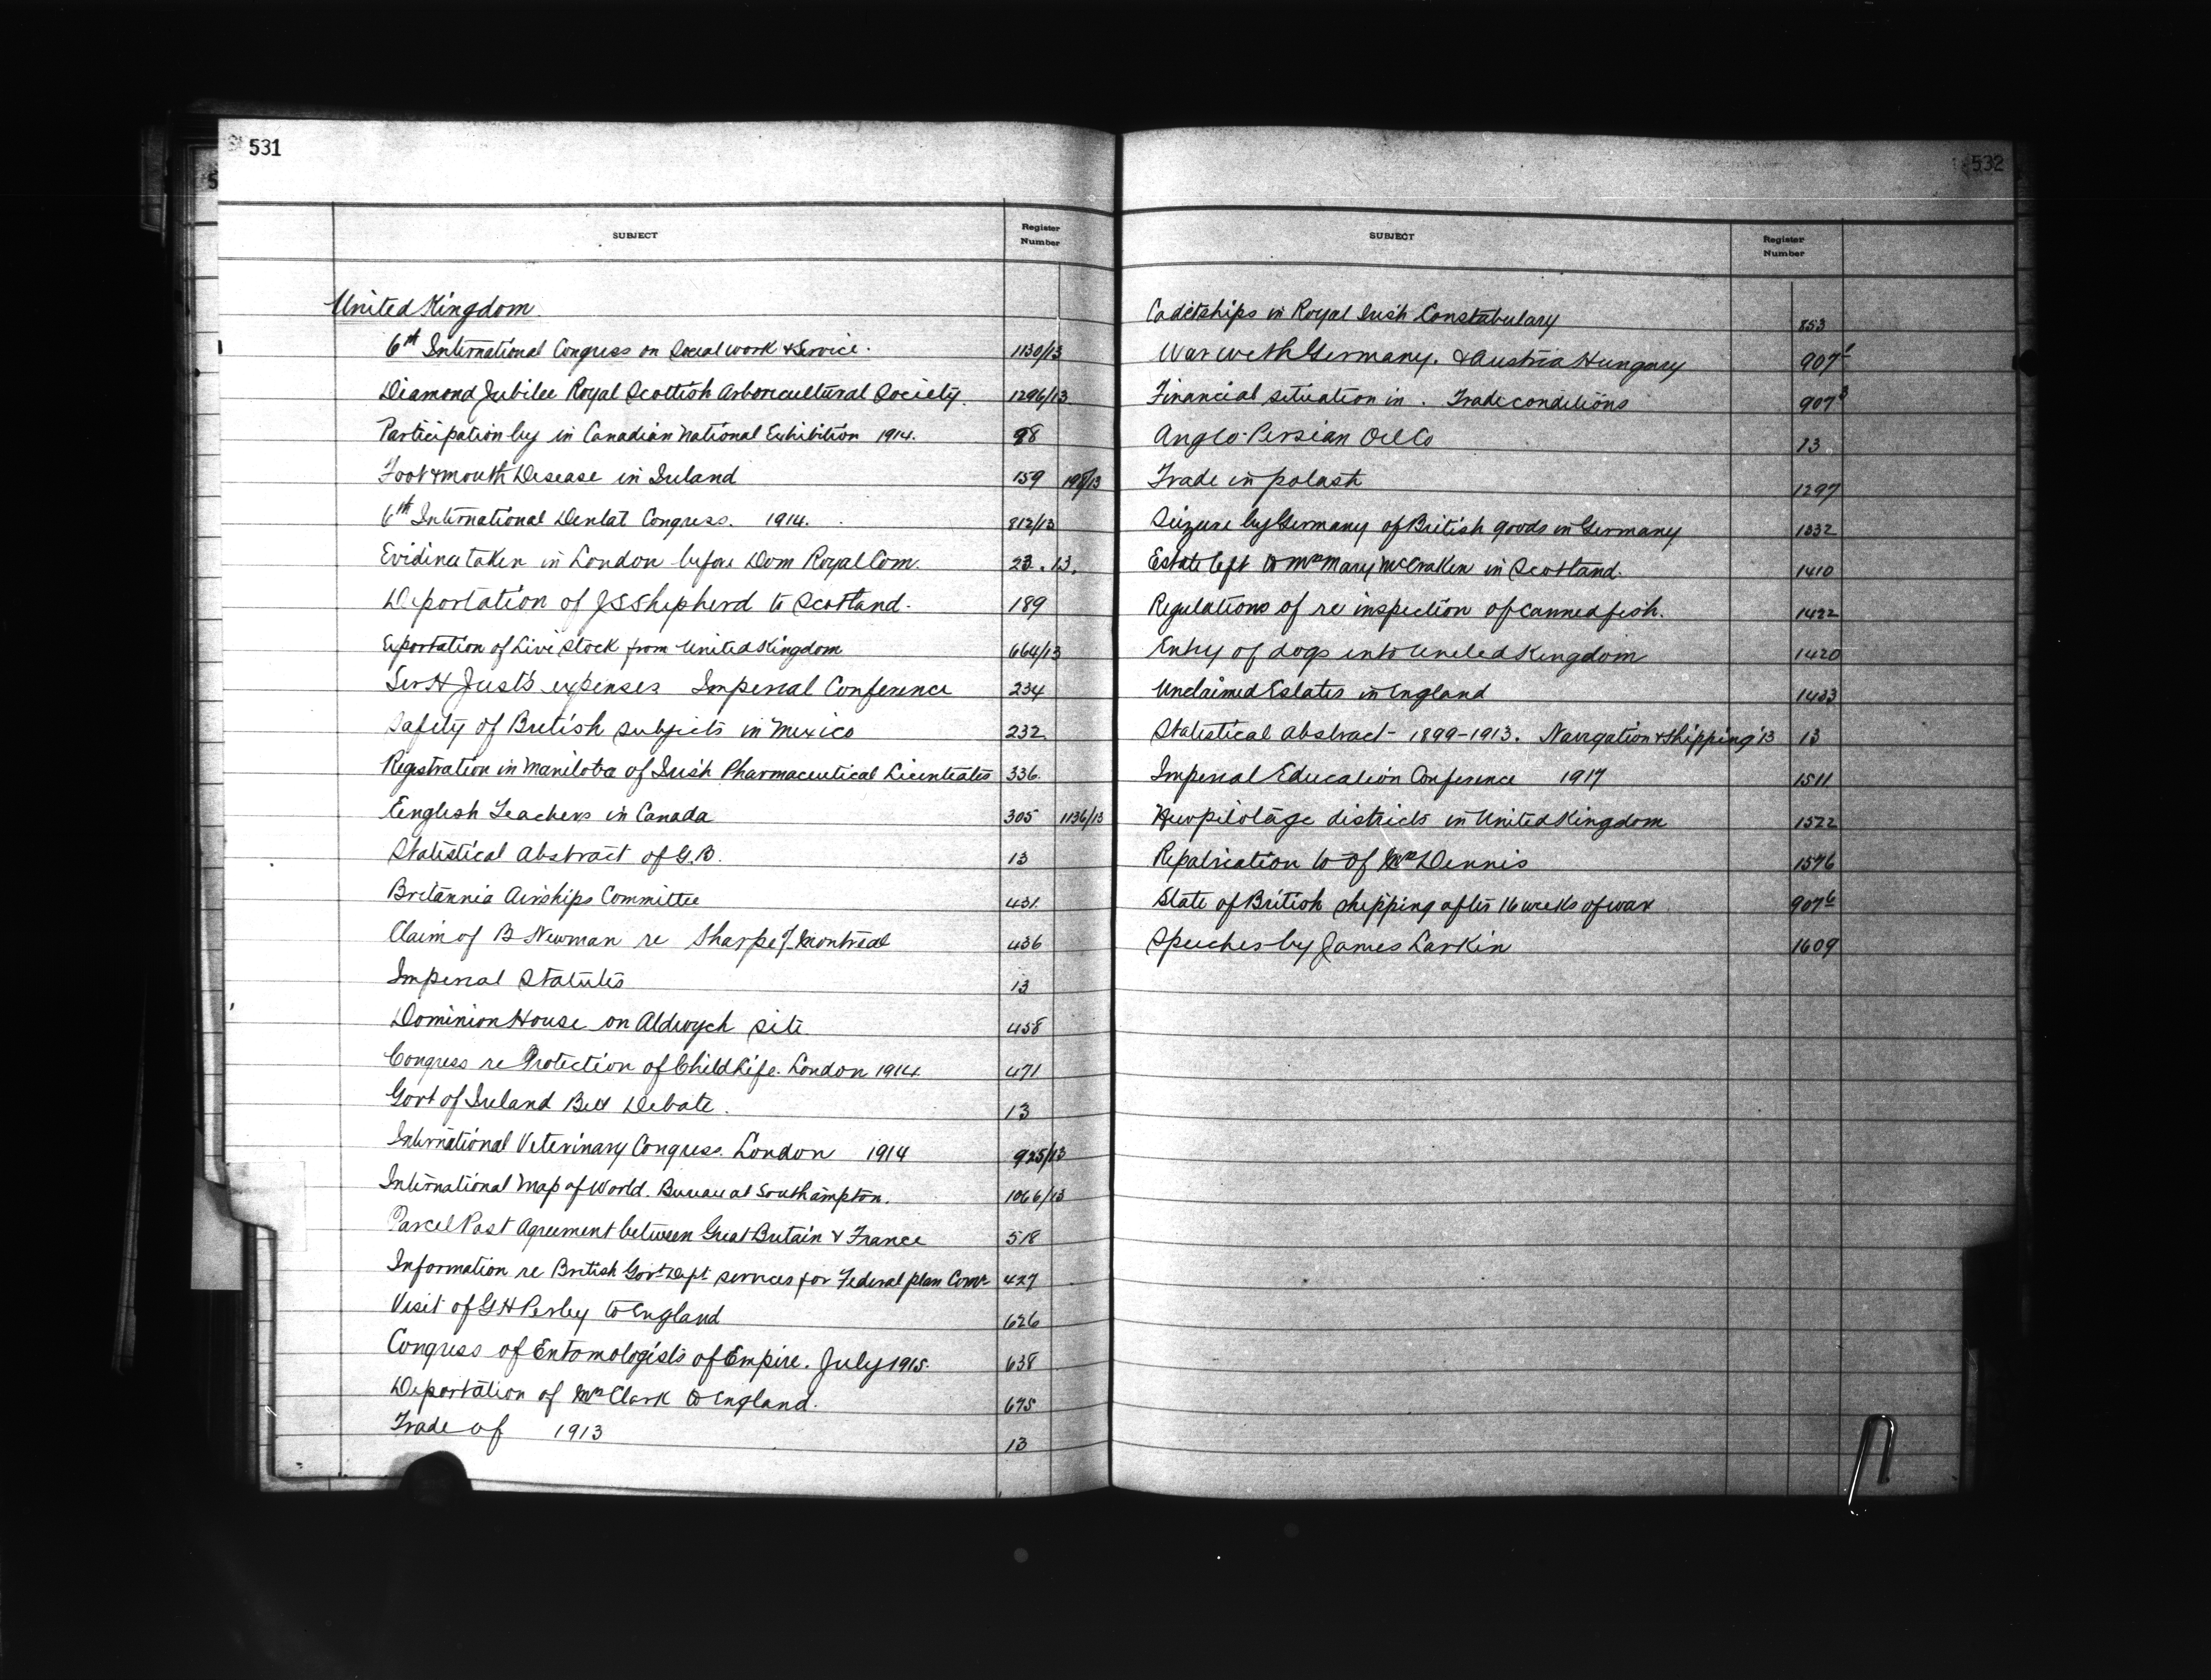 531
SUBJECT Register Number
United Kingdom
6th International Congress on Social work & Service. 1130/13
Diamond Jubilee Royal Scottish Arboricultural Society. 1296/13
Participation by in Canadian National Exhibition 1914. 98
Foot & mouth Disease in Ireland 159 198/13
6th International Dental Congress. 1914. 812/13
Evidence taken in London before Dom Royal Com. 23.13.
Deportation of J S Shepherd to Scotland. 189
Exportation of Live Stock from United Kingdom 664/13
Sir H Just's expenses Imperial Conference 234
Safety of British subjects in Mexico 232
Registration in Manitoba of Irish Pharmaceutical Licentiates 336
English Teachers in Canada 305 1136/13
Statistical Abstract of G.B. 13
Britannia Airships Committee 431
Claim of B Newman re Sharpe of Montreal 436
Imperial Statutes 13
Dominion House on Aldwych site 458
Congress re Protection of Child Life. London 1914 471
Govt of Ireland Bill Debate. 13
International Veterinary Congress. London 1914 925/13
International Map of World. Bureau at Southampton. 1066/13
Parcel Post Agreement between Great Britain & France 518
Information re British Govt Dept services for Federal plan Comn 427
Visit of G H Perley to England 626
Congress of Entomologists of Empire. July 1915. 638
Deportation of Mrs Clark to England. 675
Trade of 1913 13
532
SUBJECT Register Number
Cadetships in Royal Irish Constabulary 853
War with Germany. & Austria Hungary 907
Financial situation in. Trade conditions 907 3
Anglo-Persian Oil Co 13
Trade in potash 1297
Seizure by Germany of British goods in Germany 1332
Estate left to Mrs Mary McCraken in Scotland. 1410
Regulations of re inspection of canned fish. 1422
Entry of dogs into United Kingdom 1420
Unclaimed Estates in England 1433
Statistical Abstract - 1899-1913. Navigation & Shipping '13 13
Imperial Education Conference 1917 1511
New pilotage districts in United Kingdom 1522
Repatriation to of Mrs Dennis 1576
State of British shipping after 16 weeks of war 907 6
Speeches by James Larkin 1609